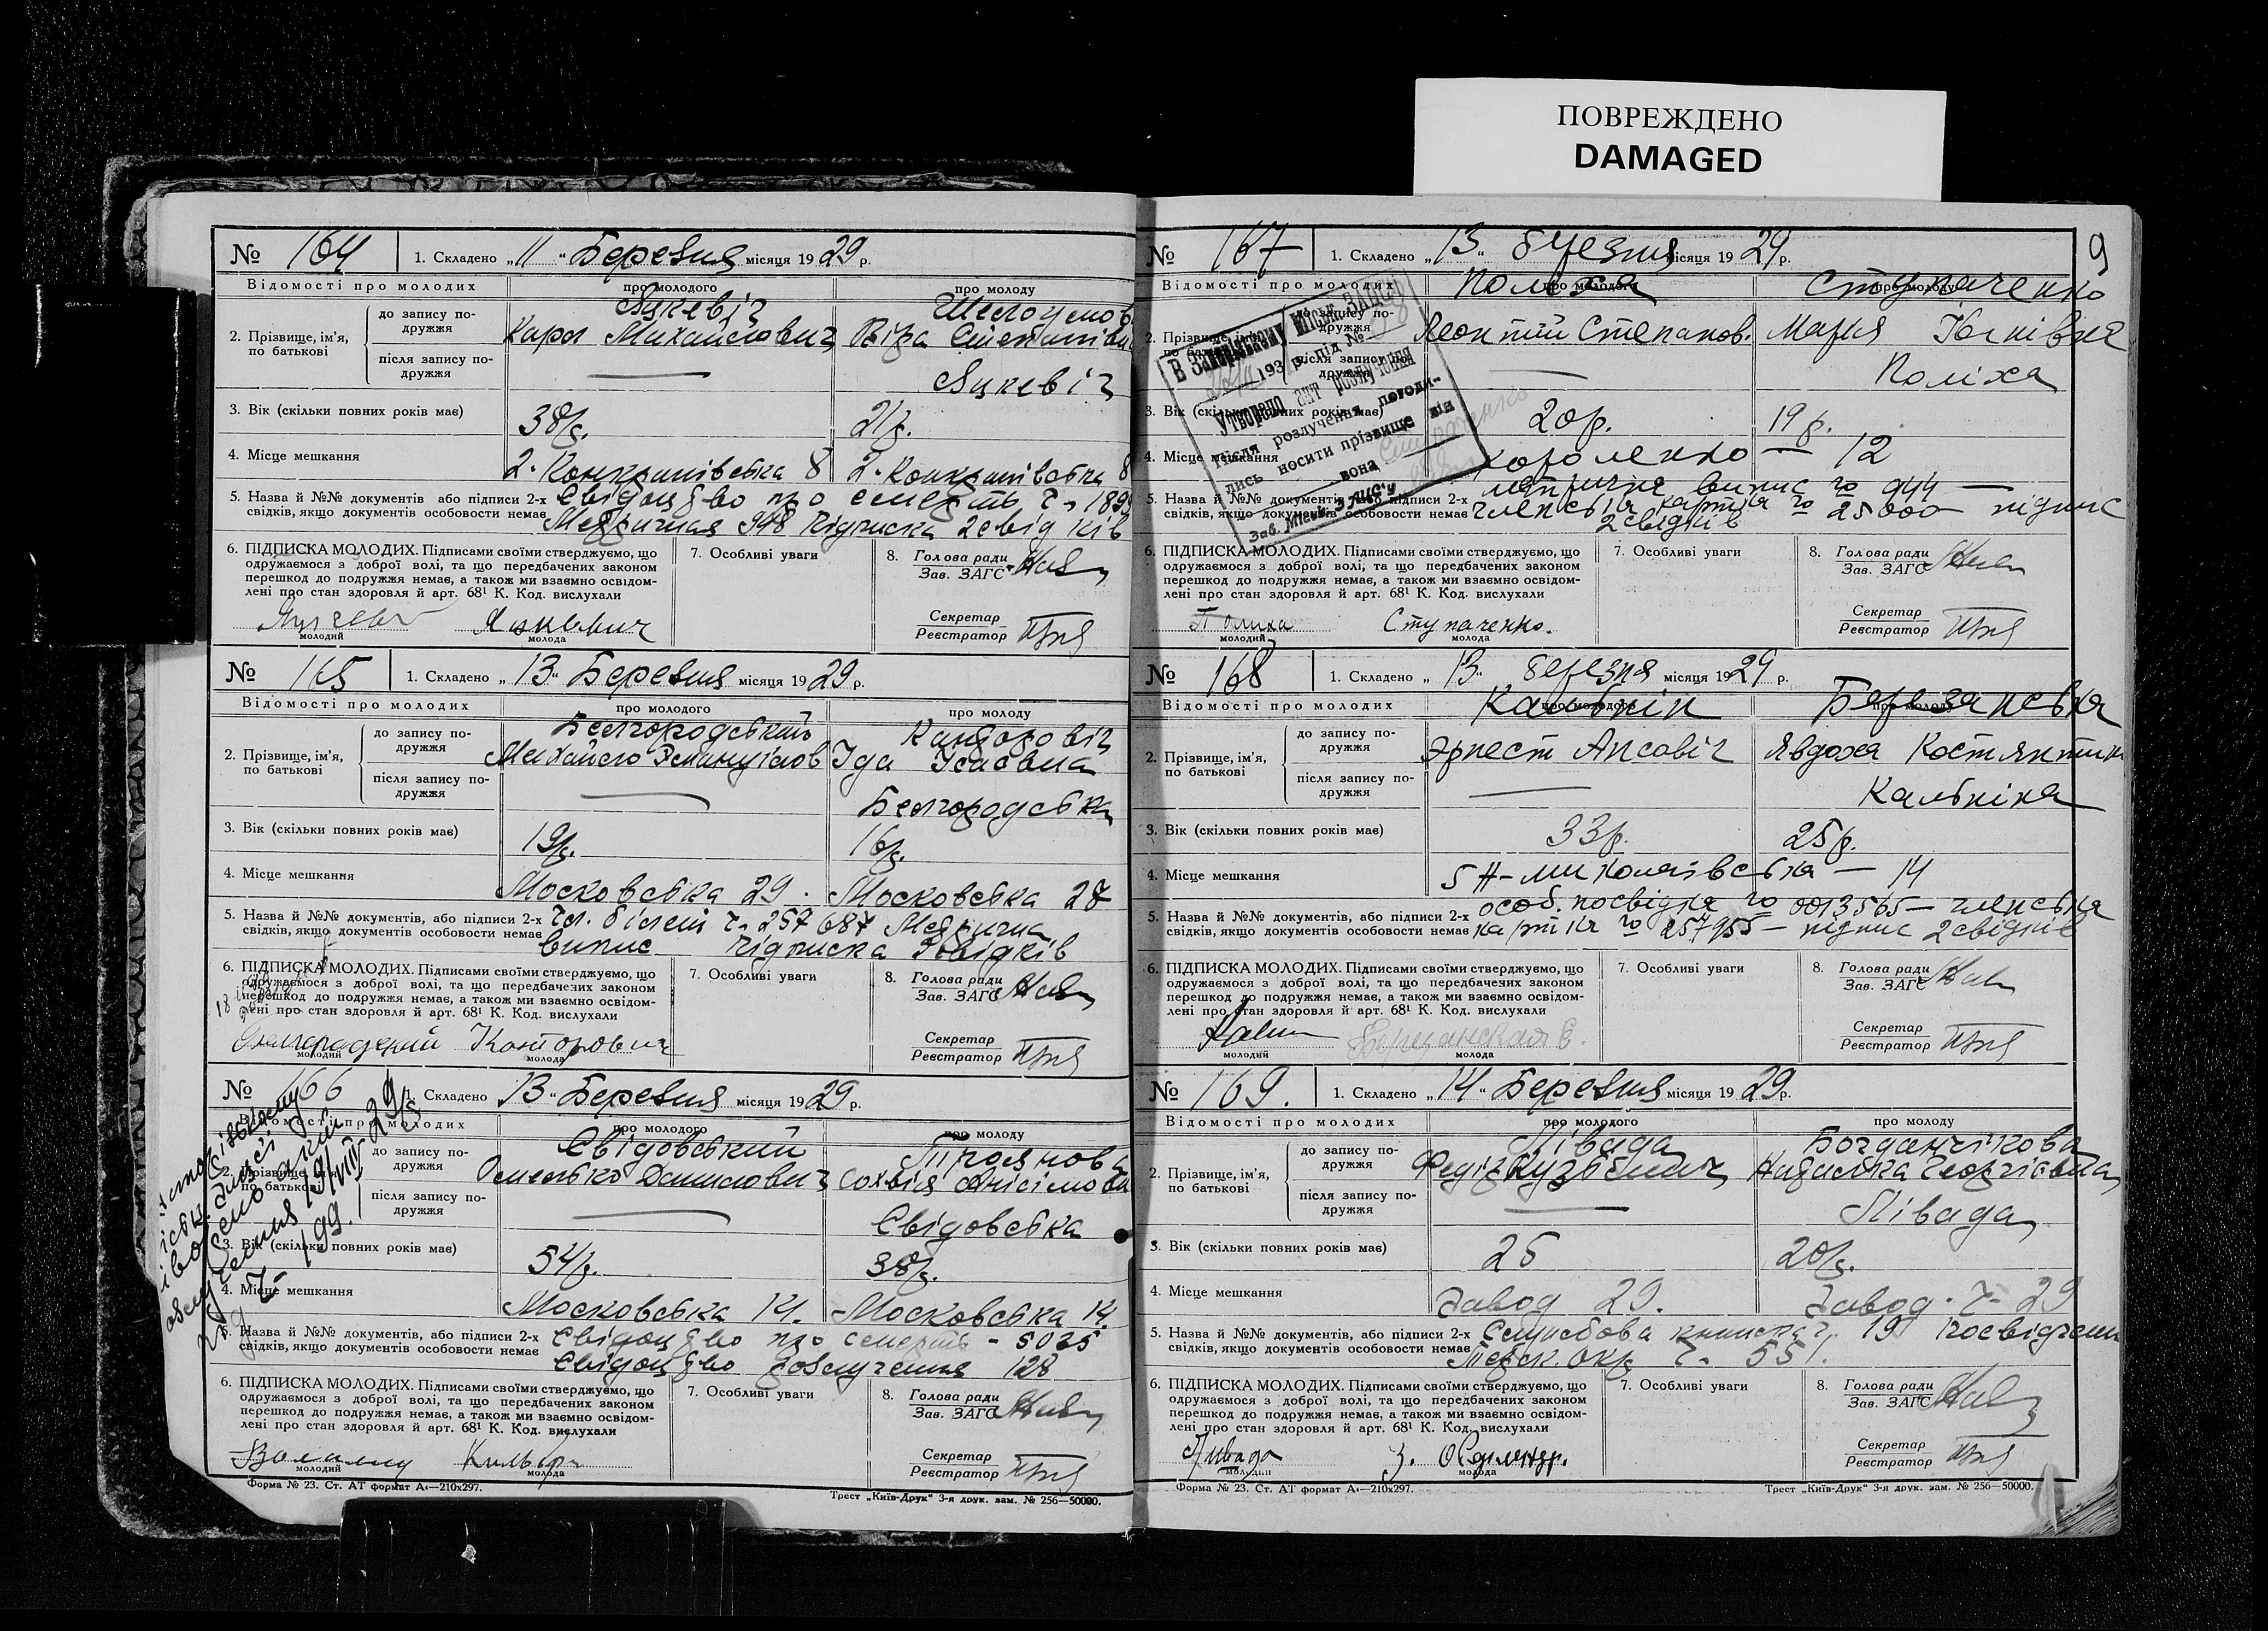 ПОВРЕЖДЕНО
DAMAGED
№ 164 1. Складено „11“ Березня місяця 1929 р.
Відомості про молодих про молодого про молоду
2. Прізвище, ім’я, по батькові
до запису по-дружжя
Яцкевіч
Карл Михайлович Віра
після запису по-дружжя
Яцкевіч
3. Вік (скільки повних років має) 38р. 21р.
4. Місце мешкання
5. Назва й №№ документів або підписи 2-х
свідків, якщо документів особовости немає
Свідоцтво про смерть
Метрична 948 Підписка 2 свідків
6. ПІДПИСКА МОЛОДИХ. Підписами своїми стверджуємо, що
одружаємося з доброї волі, та що передбачених законом
перешкод до подружжя немає, а також ми взаємно освідом-
лені про стан здоровля й арт. 68¹ К. Код. вислухали
7. Особливі уваги
8. Голова ради
Зав. ЗАГС
Секретар
Реєстратор
Яцкевич
молодий молода
№ 165 1. Складено „13“ Березня місяця 1929 р.
Відомості про молодих про молодого про молоду
2. Прізвище, ім’я, по батькові
до запису по-дружжя
Белгородський Канторовіч
Михайло Эмануілов Іда Ісаєвна
після запису по-дружжя
Белгородська
3. Вік (скільки повних років має) 19р. 16р.
4. Місце мешкання
Московська 29. Московська 27
5. Назва й №№ документів, або підписи 2-х
свідків, якщо документів особовости немає
Чл. білет ч. 257687 Метрична
випис Підписка 2 свідків
6. ПІДПИСКА МОЛОДИХ. Підписами своїми стверджуємо, що
одружаємося з доброї волі, та що передбачених законом
перешкод до подружжя немає, а також ми взаємно освідом-
лені про стан здоровля й арт. 68¹ К. Код. вислухали
7. Особливі уваги
8. Голова ради
Зав. ЗАГС
Секретар
Реєстратор
Канторович
молодий молода
№ 166 1. Складено 13“ Березня місяця 1929 р.
Відомості про молодих про молодого про молоду
2. Прізвище, ім’я, по батькові
до запису по-дружжя
Свідовський
Омелько Данилович Сохвія
після запису по-дружжя
Свідовська
3. Вік (скільки повних років має) 54р. 38р.
4. Місце мешкання
Московська 14. Московська 14.
5. Назва й №№ документів, або підписи 2-х
свідків, якщо документів особовости немає
Свідоцтво про смерть - 5025
Свідоцтво розлучення 128
6. ПІДПИСКА МОЛОДИХ. Підписами своїми стверджуємо, що
одружаємося з доброї волі, та що передбачених законом
перешкод до подружжя немає, а також ми взаємно освідом-
лені про стан здоровля й арт. 68¹ К. Код. вислухали
7. Особливі уваги
8. Голова ради
Зав. ЗАГС
Секретар
Реєстратор
молодий молода
Форма № 23. Ст. АТ формат А₄—210х297.
Трест „Київ-Друк“ 3-я друк. зам. № 256—50000.
9
№ 167 1. Складено „13“ березня місяця 1929 р.
Відомості про молодих про молодого про молоду
Поліха Ступаченко
2. Прізвище, ім’я, по батькові
до запису по-дружжя
Леонтій Степанов. Марія
після запису по-дружжя
Поліха
3. Вік (скільки повних років має) 20р. 19р.
4. Місце мешкання
Короленко — 12
5. Назва й №№ документів, або підписи 2-х
свідків, якщо документів особовости немає
метрична випис № 944 —
членська картка № 25000 підпис
2 свідків
Утворено акт розлучення
Після розлучення погоди-
лись носити прізвище він
вона Ступаченко
Зав. Міськ. ЗАНС’у
6. ПІДПИСКА МОЛОДИХ. Підписами своїми стверджуємо, що
одружаємося з доброї волі, та що передбачених законом
перешкод до подружжя немає, а також ми взаємно освідом-
лені про стан здоровля й арт. 68¹ К. Код. вислухали
7. Особливі уваги
8. Голова ради
Зав. ЗАГС
Секретар
Реєстратор
Полиха Ступаченко.
молодий молода
№ 168 1. Складено „13“ березня місяця 1929 р.
Відомості про молодих про молодого про молоду
Кальнін Березанська
2. Прізвище, ім’я, по батькові
до запису по-дружжя
Эрнест Ансовіч Явдоха Костянтин
після запису по-дружжя
Кальніна
3. Вік (скільки повних років має) 33р. 25р.
4. Місце мешкання
5 Н-миколаївська — 14
5. Назва й №№ документів, або підписи 2-х
свідків, якщо документів особовости немає
особ. посвідка № 0013565 — членська
картка № 257955 — підпис 2 свідків
6. ПІДПИСКА МОЛОДИХ. Підписами своїми стверджуємо, що
одружаємося з доброї волі, та що передбачених законом
перешкод до подружжя немає, а також ми взаємно освідом-
лені про стан здоровля й арт. 68¹ К. Код. вислухали
7. Особливі уваги
8. Голова ради
Зав. ЗАГС
Секретар
Реєстратор
молодий молода
№ 169. 1. Складено „14“ Березня місяця 1929 р.
Відомості про молодих про молодого про молоду
2. Прізвище, ім’я, по батькові
до запису по-дружжя
Лівада Богданчікова
Федір Кузьмич Наталка Георгієвна
після запису по-дружжя
Лівада
3. Вік (скільки повних років має) 25 20р.
4. Місце мешкання
Завод 29. Завод. ч. 29
5. Назва й №№ документів, або підписи 2-х
свідків, якщо документів особовости немає
Службова книжка ч. 19 Посвідчен
6. ПІДПИСКА МОЛОДИХ. Підписами своїми стверджуємо, що
одружаємося з доброї волі, та що передбачених законом
перешкод до подружжя немає, а також ми взаємно освідом-
лені про стан здоровля й арт. 68¹ К. Код. вислухали
7. Особливі уваги
8. Голова ради
Зав. ЗАГС
Секретар
Реєстратор
Ливада
молодий молода
Форма № 23. Ст. АТ формат А₄—210х297.
Трест „Київ-Друк“ 3-я друк. зам. № 256—50000.